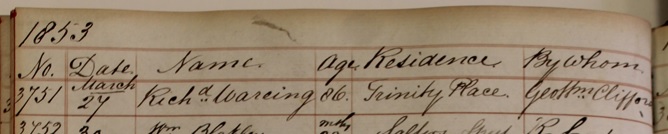 1853
No. Date. Name. Age. Residence. By Whom
March
3751 27 Richd. Wareing 86. Trinity Place. Geo Wm Clifford
3752 30 Wm mths